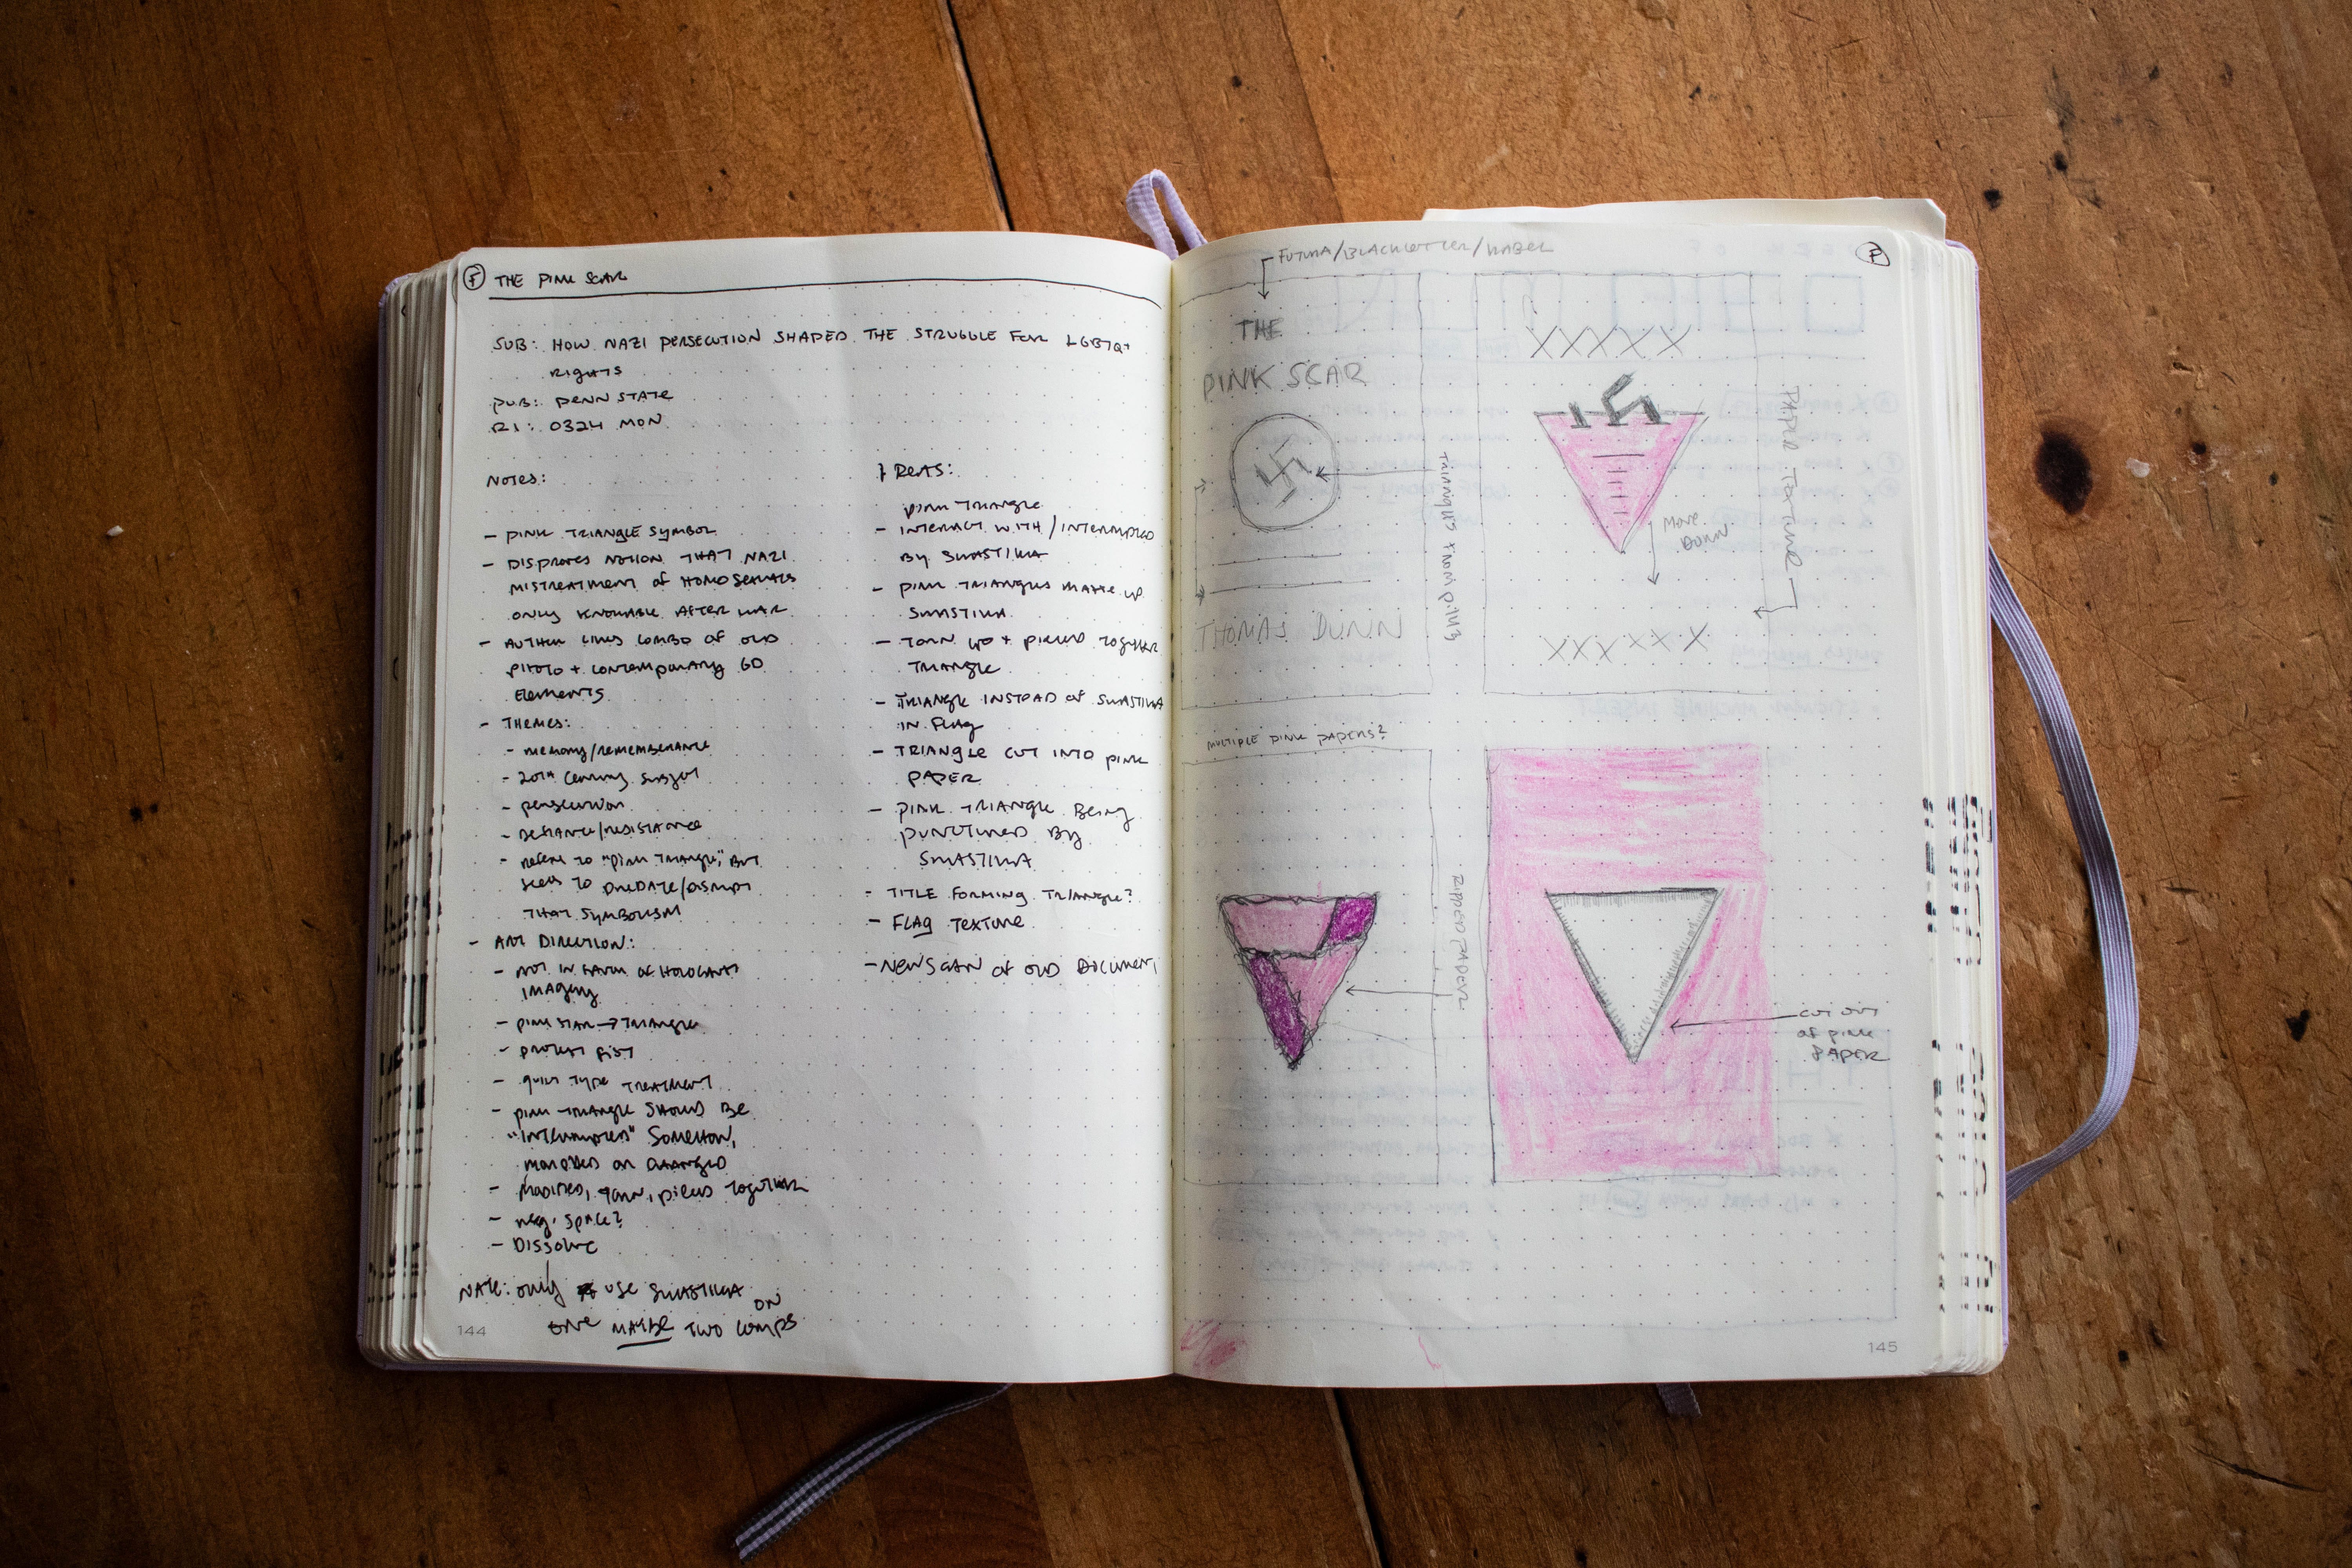 F THE PINK SCAR
SUB: HOW NAZI PERSECUTION SHAPED THE STRUGGLE FOR LGBTQ+
RIGHTS
PUB: PENN STATE
R1: 0324 MON
NOTES:
- PINK TRIANGLE SYMBOL
- DISPROVES NOTION THAT NAZI
MISTREATMENT OF HOMOSEXUALS
ONLY KNOWABLE AFTER WAR
- AUTHOR LIKES COMBO OF OLD
PHOTO + CONTEMPORARY GD
ELEMENTS
- THEMES:
- MEMORY/REMEMBERANCE
- 20TH CENTURY SUBJECT
- PERSECUTION
- DEFIANCE/RESISTANCE
- REFERS TO "PINK TRIANGLE," BUT
SEEKS TO PREDATE/DISRUPT
THAT SYMBOLISM
- ART DIRECTION:
- NOT IN FAVOR OF HOLOCAUST
IMAGERY
- PINK STAR → TRIANGLE
- PROTEST FIST
- QUIET TYPE TREATMENT
- PINK TRIANGLE SHOULD BE
"INTERRUPTED" SOMEHOW,
MORPHED OR CHANGED
- MODIFIED, TORN, PIECED TOGETHER
- NEG. SPACE?
- DISSOLVE
NOTE: ONLY USE SWASTIKA
ON
ONE MAYBE TWO COMPS
144
IDEAS:
PINK TRIANGLE
- INTERACT WITH/INTERRUPTED
BY SWASTIKA
- PINK TRIANGLES MAKE UP
SWASTIKA
- TORN UP + PIECED TOGETHER
TRIANGLE
- TRIANGLE INSTEAD OF SWASTIKA
IN FLAG
- TRIANGLE CUT INTO PINK
PAPER
- PINK TRIANGLE BEING
PUNCTURED BY
SWASTIKA
- TITLE FORMING TRIANGLE?
- FLAG TEXTURE
- NEW SCAN OF OLD DOCUMENT
FUTURA/BLACKLETTER/KABEL
F
THE
PINK SCAR
THOMAS DUNN
XXXXX
MOVE
DOWN
PAPER TEXTURE
XXXXXX
MULTIPLE PINK PAPERS?
RIPPED PAPER
CUT OUT
OF PINK
PAPER
145